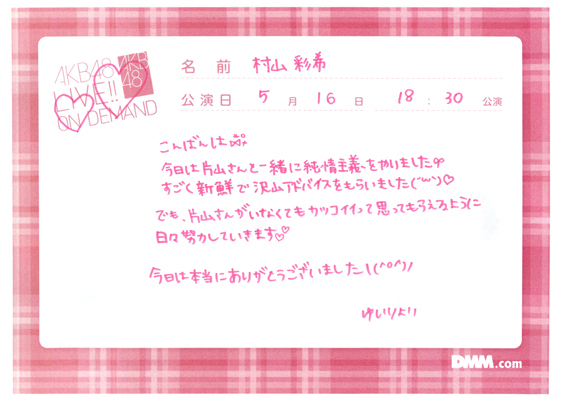 AKB48
LIVE!!
ON DEMAND
AKB
48
名前 村山彩希
公演日 5月16日 18:30 公演
こんばんは
今日は片山さんと一緒に純情主義をやりました
すごく新鮮で沢山アドバイスをもらいました(˘ω˘)♡
でも、片山さんがいなくてもカッコイイって思ってもらえるように
日々努力していきます♡♡
今日は本当にありがとうございました\(^o^)/
ゆいりより
DMM.com